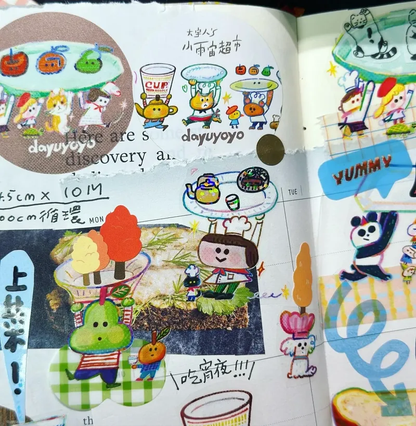 大宇人了
小雨宙超市
CUP
dayuyoyo
dayuyoyo
Here are s
discovery an
4.5cm x 10M
00cm循環
MON
TUE
YUMMY
上菜!
\吃宵夜!!!/
th